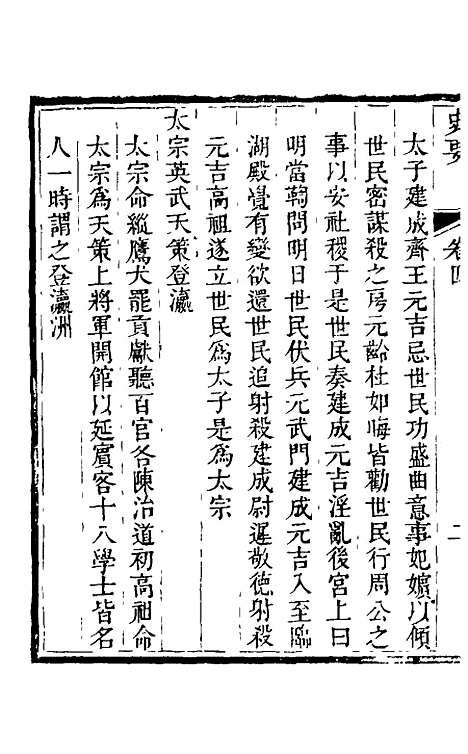 史要 卷四 二
太子建成齊王元吉忌世民功盛曲意事妃嬪以傾
世民密謀殺之房元齡杜如晦皆勸世民行周公之
事以安社稷于是世民奏建成元吉淫亂後宮上曰
明當鞫問明日世民伏兵元武門建成元吉入至臨
湖殿覺有變欲還世民追射殺建成尉遲敬徳射殺
元吉高祖遂立世民爲太子是爲太宗
太宗英武天策登瀛
太宗命縱鷹犬罷貢獻聽百官各陳治道初高祖命
太宗爲天策上將軍開館以延賓客十八學士皆名
人一時謂之登瀛洲